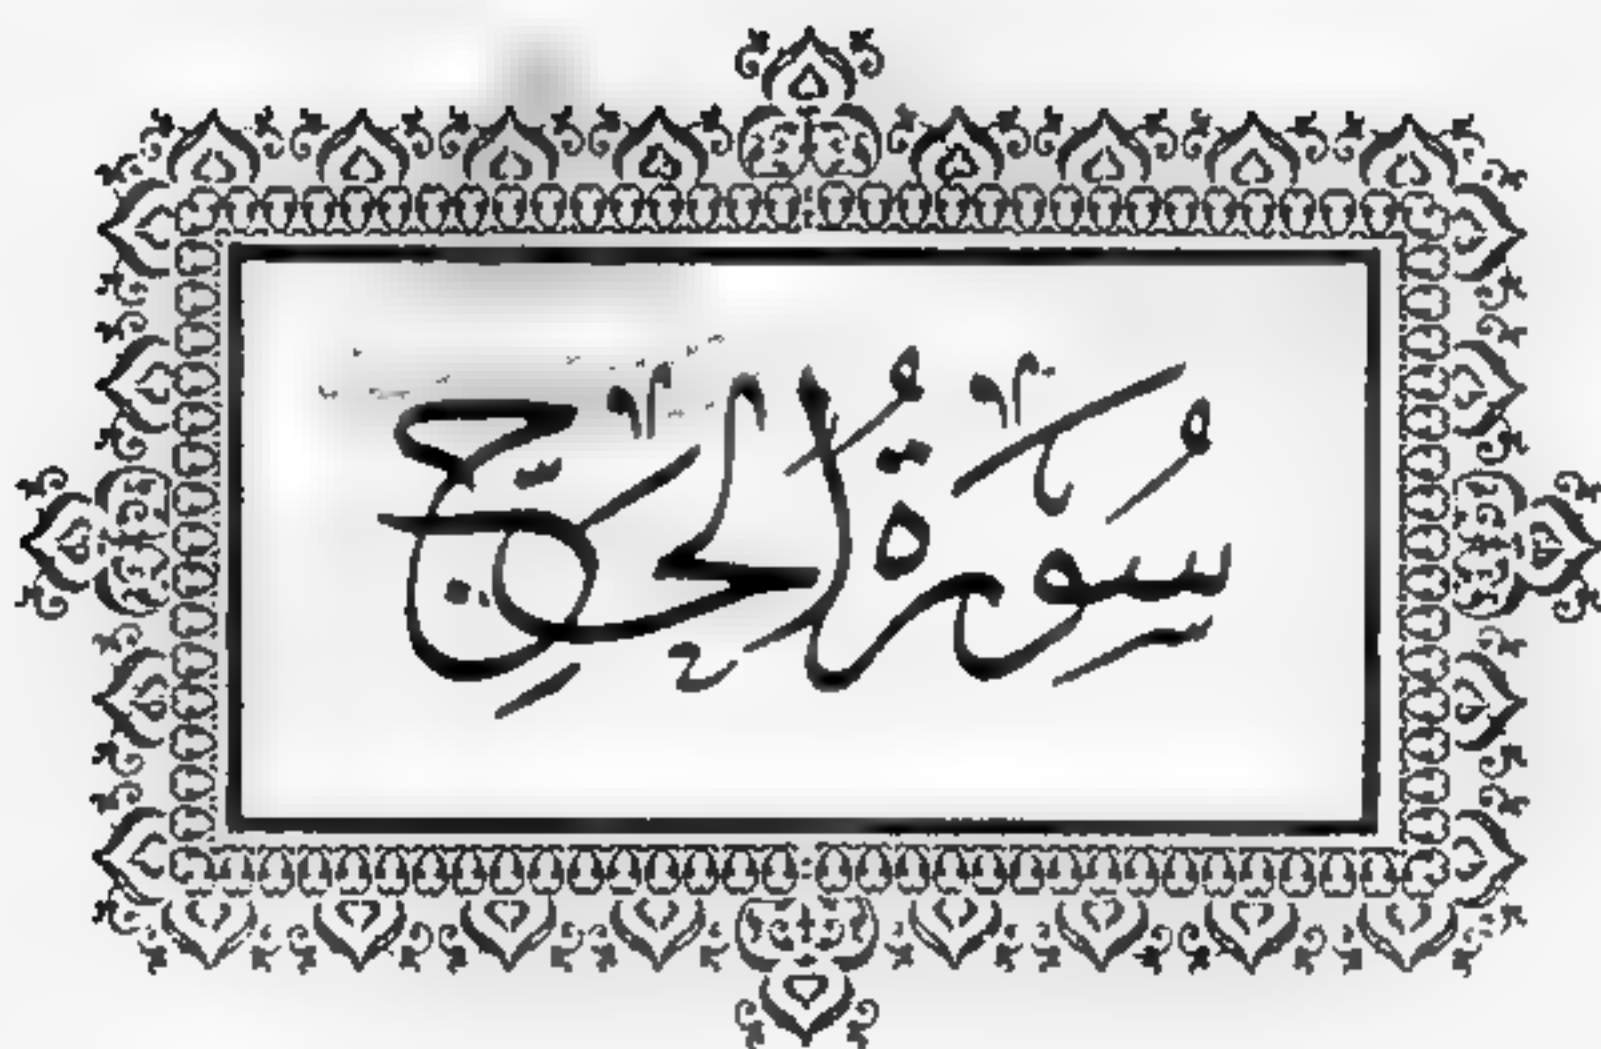 سُورَةُ الحَجِّ